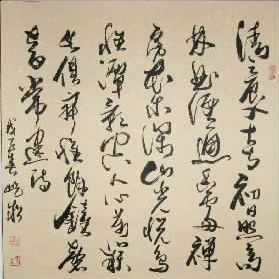 清晨入古寺初日照高
林曲徑通幽處禪
房花木深山光悅鳥
性潭影空人心萬籟
此俱寂惟餘鐘磬
音常建詩